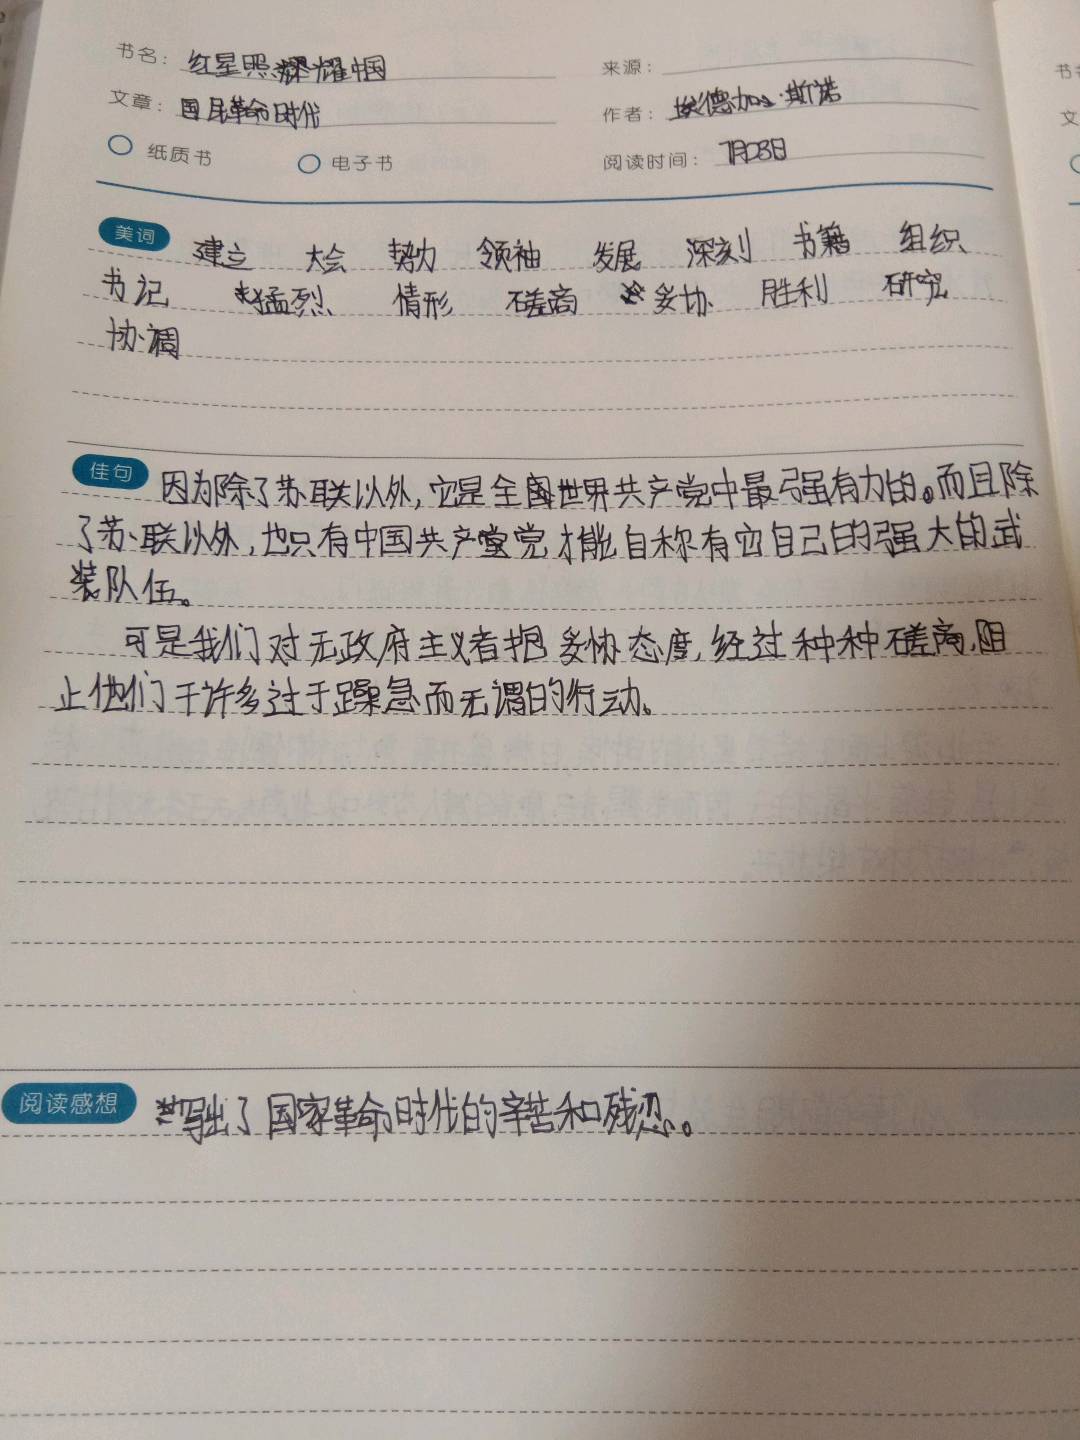 书名：红星照耀中国 来源：
文章：国民革命时代 作者：埃德加·斯诺
纸质书 电子书 阅读时间：7月23日
美词 建立 大会 势力 领袖 发展 深刻 书籍 组织
书记 猛烈 情形 磋商 妥协 胜利 研究
协调
佳句 因为除了苏联以外,它是全国世界共产党中最强有力的。而且除
了苏联以外,也只有中国共产党才能自称有它自己的强大的武
装队伍。
可是我们对无政府主义者抱妥协态度,经过种种磋商,阻
止他们干许多过于躁急而无谓的行动。
阅读感想 写出了国家革命时代的辛苦和残忍。